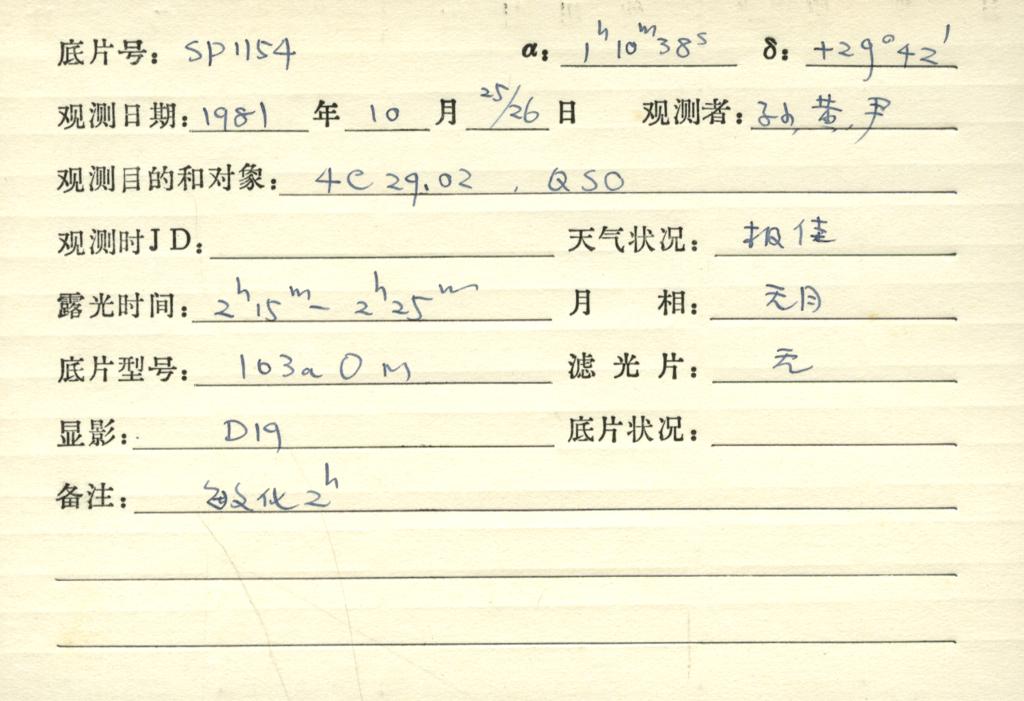 底片号: SP1154 α: 1ʰ10ᵐ38ˢ δ: +29°42′
观测日期: 1981 年 10 月 25/26 日 观测者: 孙, 黄, 尹
观测目的和对象: 4C 29.02 , QSO
观测时JD: 天气状况: 极佳
露光时间: 2ʰ15ᵐ — 2ʰ25ᵐ 月 相: 无月
底片型号: 103a O M 滤光片: 无
显影: D19 底片状况:
备注: 敏化 2ʰ